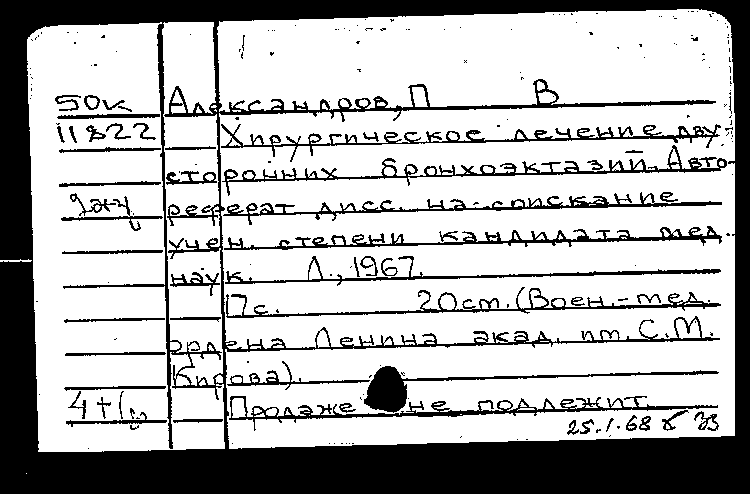 50к Александров, П В
11822 Хирургическое лечение дву-
сторонних бронхоэктазий. Авто-
реферат дисс. на списание
учен. степени кандидата мед.
наук. Л., 1967.
17с. 20см. (Воен.-мед.
ордена Ленина акад. им. С.М.
Кирова).
4+1 Продаже не подлежит
25.1.68 б